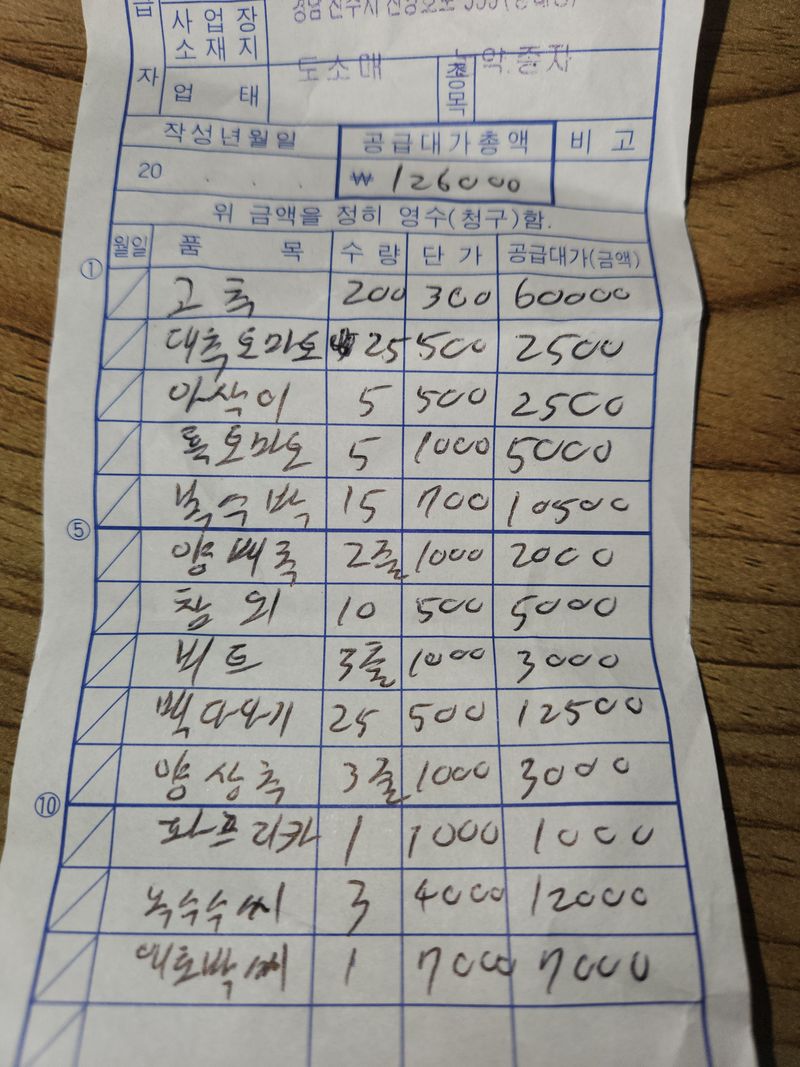 급
자
사업장
소재지
업 태
도소매
종목
작성년월일 공급대가총액 비고
20 . . . ₩ 126000
위 금액을 정히 영수(청구)함.
월일 품 목 수량 단가 공급대가(금액)
① 고추 200 300 60000
대추토마토 25 500 2500
아삭이 5 500 2500
흑토마토 5 1000 5000
복수박 15 700 10500
⑤
양배추 2줄 1000 2000
참외 10 500 5000
비트 3줄 1000 3000
맥다와기 25 500 12500
양상추 3줄 1000 3000
⑩
파프리카 1 1000 1000
옥수수씨 3 4000 12000
애호박씨 1 7000 7000